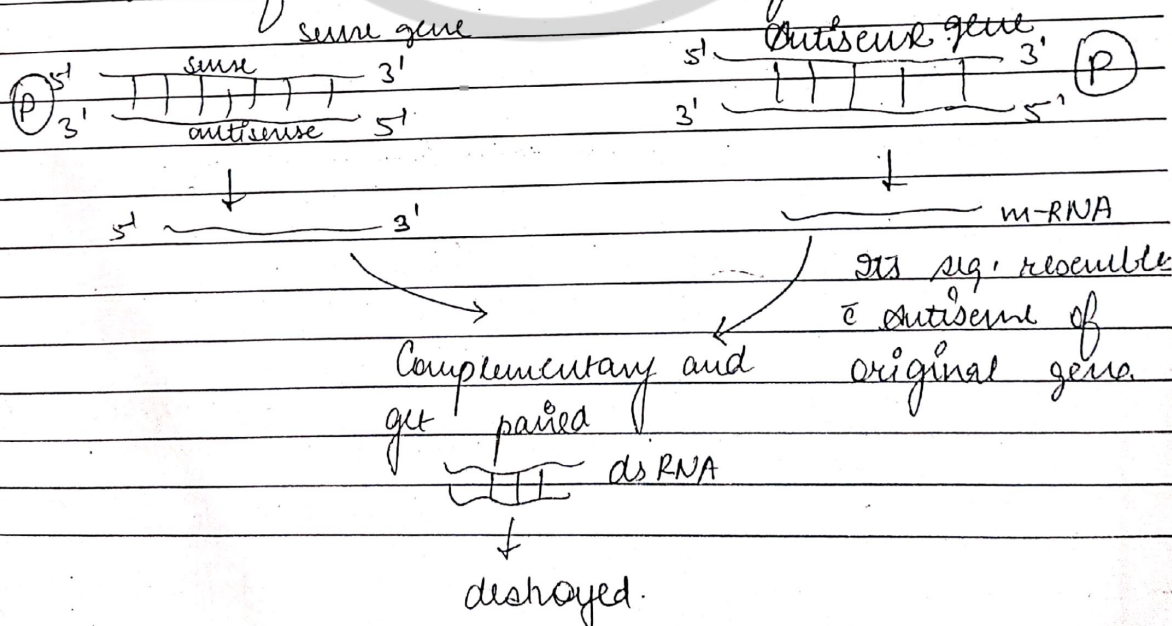 sense gene
Antisense gene
5' sense 3'
5' 3' P
P 3' antisense 5'
3' 5'
5' 3'
m-RNA
Its seq. resembles
c̄ antisense of
original gene.
Complementary and
get paired
ds RNA
destroyed.